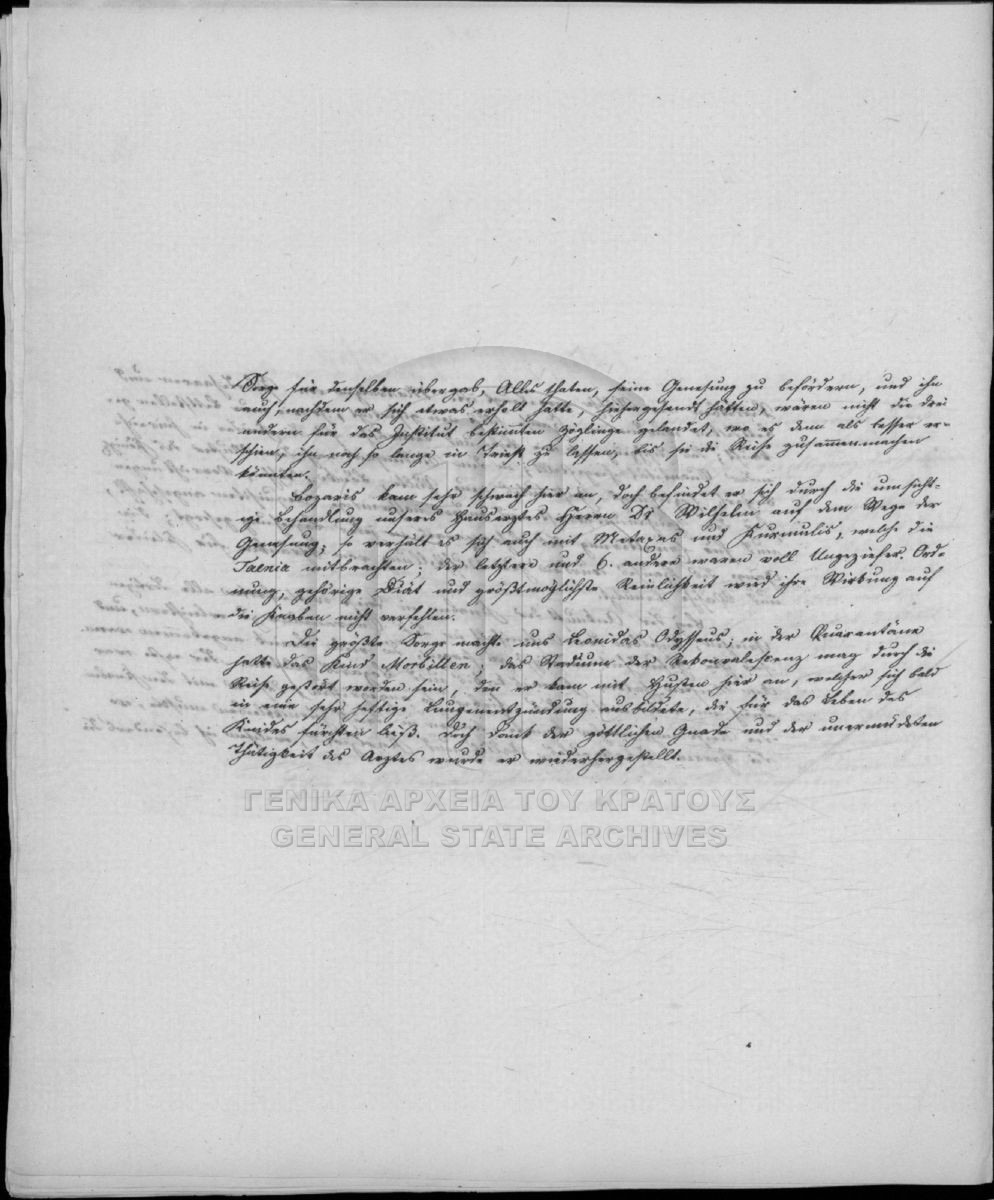 Sorge für denselben übergab, Alles thaten, seine Genesung zu befördern, und ihn
auch, nachdem er sich etwas erholt hatte, hieher gesandt hätten, wären nicht die drei
andern für das Institut bestimten Zöglinge gelandet, wo es dem als besser er-
schien, ihn noch so lange in Triest zu lassen, bis sie die Reise zusammenmachen
könnten.
Bozaris kam sehr schwach hier an, doch befindet er sich durch die umsicht-
ige Behandlung unseres Hausarztes Herrn Dr Wilhelm auf dem Wege der
Genesung; so verhält es sich auch mit Metaxas und Kurmulis, welche die
Taenia mitbrachten; der letztere und 6. andere waren voll Ungeziefer. Ord-
nung, gehörige Diät und größtmöglichste Reinlichkeit wird ihre Wirkung auf
die Knaben nicht verfehlen.
Die größte Sorge machte uns Leonidas Odysseus; in der Quarantäne
hatte das Kind Morbillen; das Stadium der Rekonvaleszenz mag durch die
Reise gestört worden sein, den er kam mit Husten hier an, welcher sich bald
in eine sehr heftige Lungenentzündung ausbildete, die für das Leben des
Kindes fürchten ließ. Doch Dank der göttlichen Gnade und der unermüdeten
Thätigkeit des Arztes wurde er wiederhergestellt.
ΓΕΝΙΚΑ ΑΡΧΕΙΑ ΤΟΥ ΚΡΑΤΟΥΣ
GENERAL STATE ARCHIVES